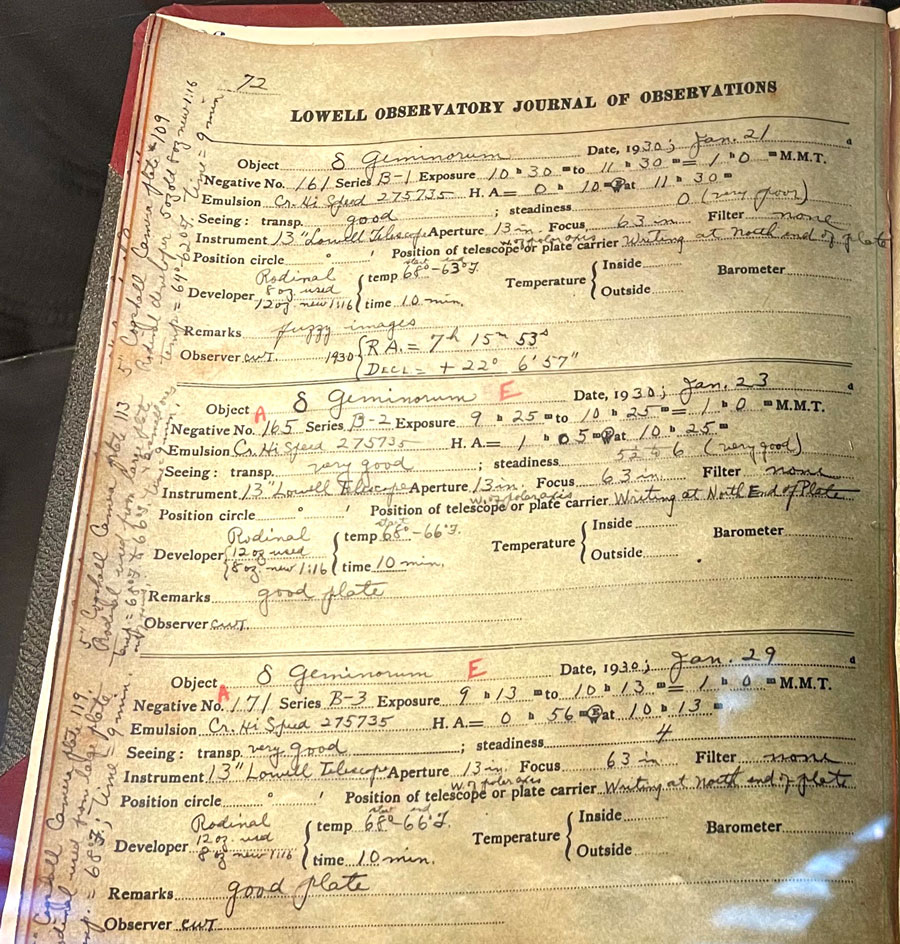 72
LOWELL OBSERVATORY JOURNAL OF OBSERVATIONS
Object δ Geminorum Date, 1930; Jan. 21 d
Negative No. 161 Series B-1 Exposure 10 h 30 m to 11 h 30 m = 1 h 0 m M.M.T.
Emulsion Cr. Hi Speed 275735 H. A. = 0 h 10 m at 11 h 30 m
Seeing: transp. good ; steadiness 0 (very poor)
Instrument 13" Lowell Telescope Aperture 13 in. Focus 63 in. Filter none
Position circle ° ' Position of telescope or plate carrier Writing at North end of plate
Developer Rodinal 8 oz used 12 oz. new 1:16 temp start 68° - end 63° F. time 10 min. Temperature Inside Outside Barometer
Remarks fuzzy images
Observer CWT 1930 R.A. = 7h 15m 53s
Decl = + 22° 6' 57"
Object δ Geminorum E Date, 1930; Jan. 23 d
A
Negative No. 165 Series B-2 Exposure 9 h 25 m to 10 h 25 m = 1 h 0 m M.M.T.
Emulsion Cr. Hi Speed 275735 H. A. = 1 h 05 m at 10 h 25 m
Seeing: transp. very good ; steadiness (very good)
Instrument 13" Lowell Telescope Aperture 13 in. Focus 63 in. Filter none
w. of polar axis
Position circle ° ' Position of telescope or plate carrier Writing at North End of Plate
Developer Rodinal 12 oz used 8 oz. new 1:16 temp start 68° - 66° F. time 10 min. Temperature Inside Outside Barometer
Remarks good plate
Observer CWT
Object δ Geminorum E Date, 1930; Jan. 29 d
A
Negative No. 171 Series B-3 Exposure 9 h 13 m to 10 h 13 m = 1 h 0 m M.M.T.
Emulsion Cr. Hi Speed 275735 H. A. = 0 h 56 m E at 10 h 13 m
Seeing: transp. very good ; steadiness 4
Instrument 13" Lowell Telescope Aperture 13 in. Focus 63 in Filter none
w. of polar axis
Position circle ° ' Position of telescope or plate carrier Writing at north end of plate
Developer Rodinal 12 oz used 8 oz new 1:16 temp start 68° - end 66° F. time 10 min. Temperature Inside Outside Barometer
Remarks good plate
Observer CWT
5" Cogshall Camera plate 109
Rodinal developer 8 oz new 1:16
temp. = 64°-62° F time = 9 min
5" Cogshall Camera plate 113
Rodinal used from large plate
temp = 68° F
Cogshall Camera plate 119.
Rodinal used from large plate
temp. = 68° F; time = 9 min.